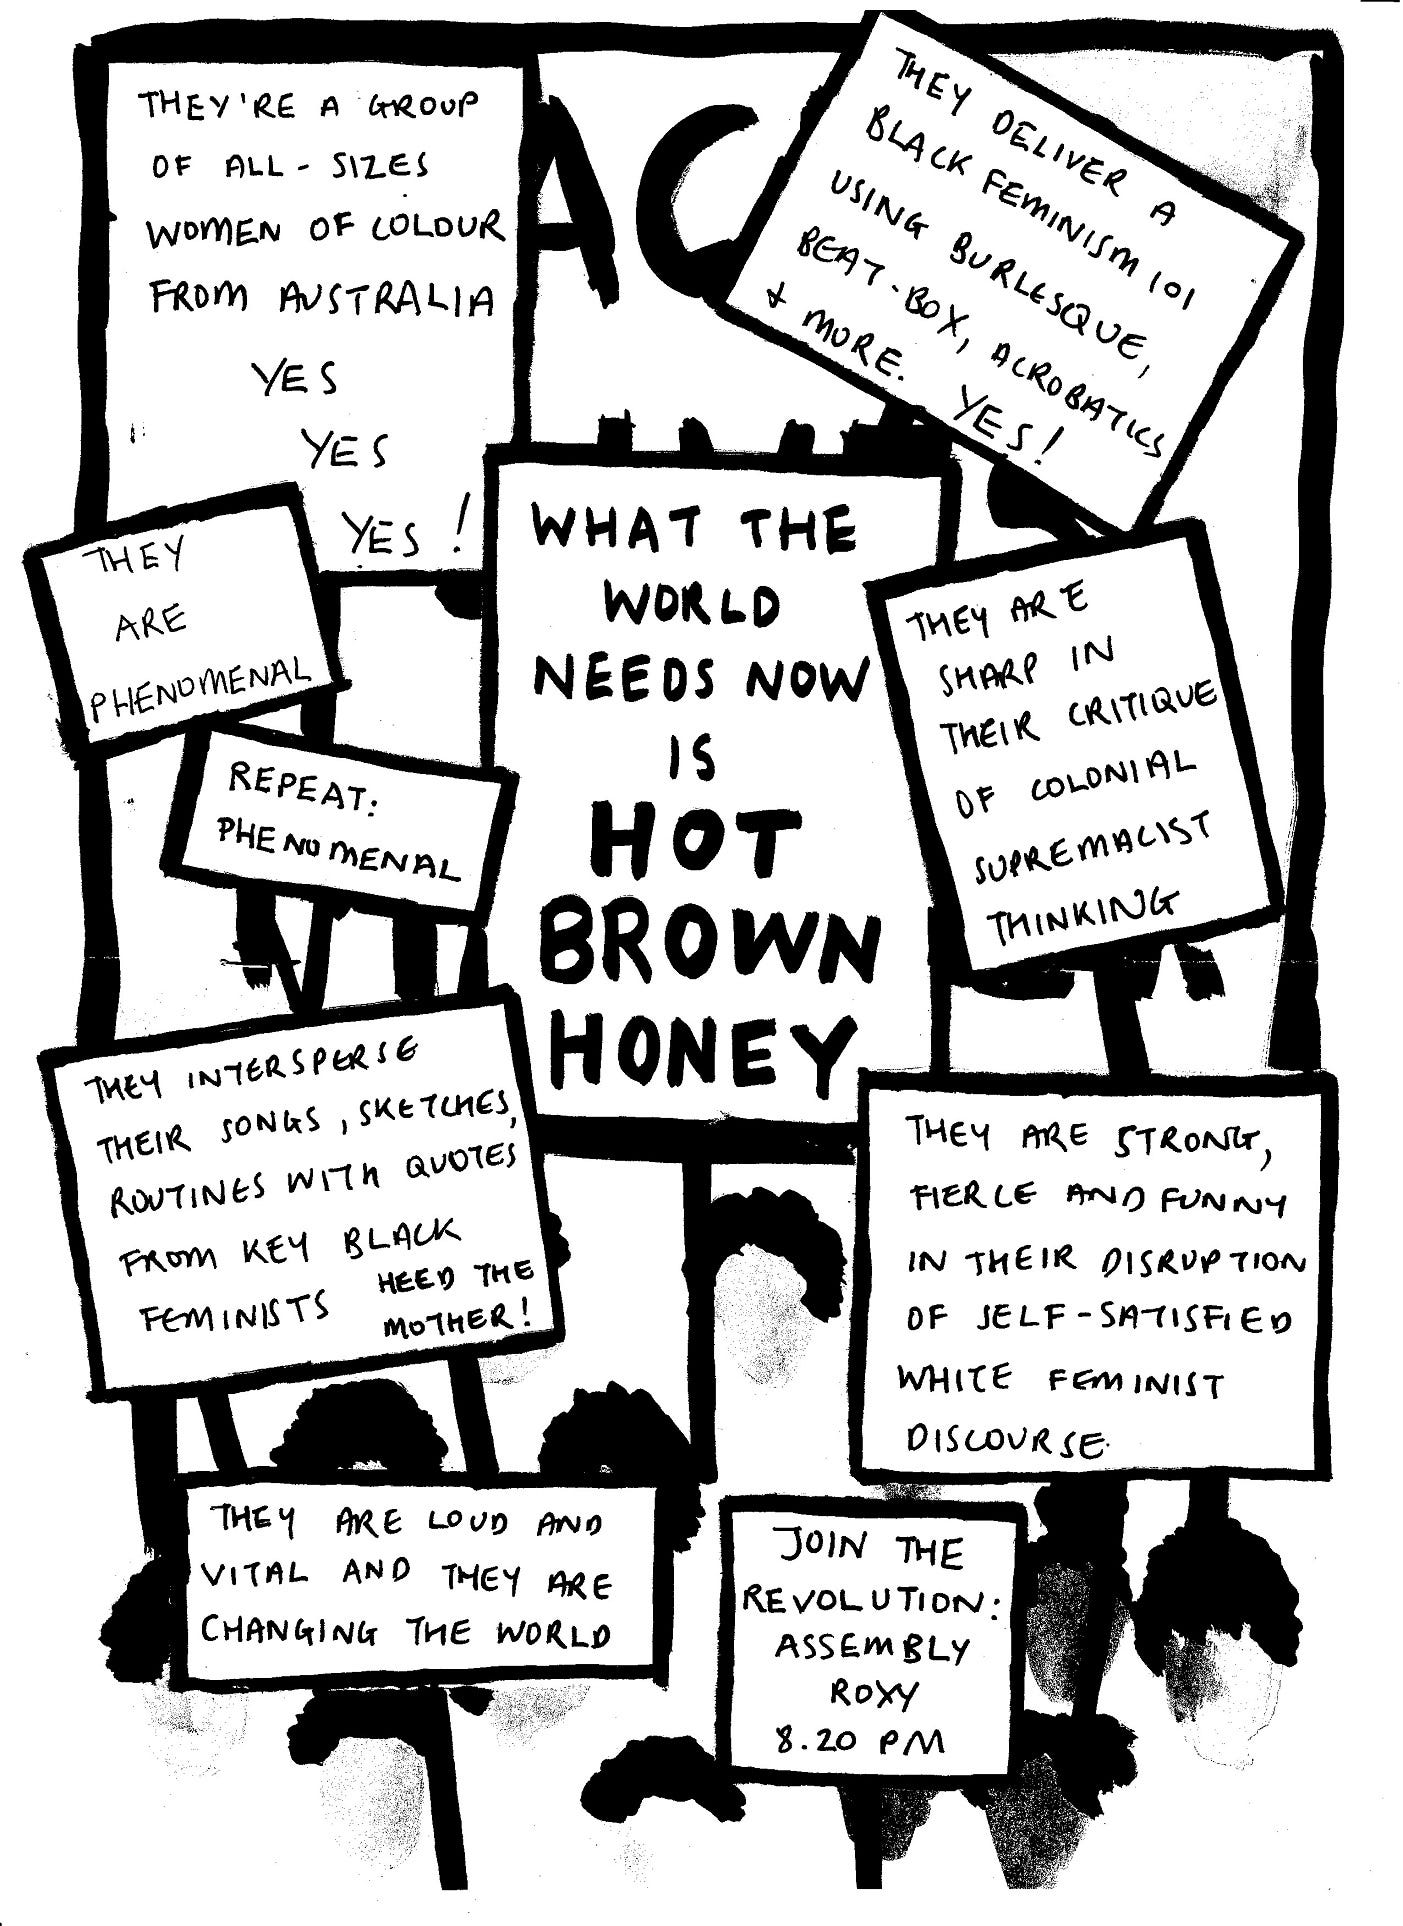 THEY'RE A GROUP
OF ALL-SIZES
WOMEN OF COLOUR
FROM AUSTRALIA
YES
YES
YES!
AC
THEY DELIVER A
BLACK FEMINISM 101
USING BURLESQUE,
BEAT-BOX, ACROBATICS
& MORE. YES!
THEY
ARE
PHENOMENAL
REPEAT:
PHENOMENAL
WHAT THE
WORLD
NEEDS NOW
IS
HOT
BROWN
HONEY
THEY ARE
SHARP IN
THEIR CRITIQUE
OF COLONIAL
SUPREMACIST
THINKING
THEY INTERSPERSE
THEIR SONGS, SKETCHES,
ROUTINES WITH QUOTES
FROM KEY BLACK
FEMINISTS
HEED THE
MOTHER!
THEY ARE STRONG,
FIERCE AND FUNNY
IN THEIR DISRUPTION
OF SELF-SATISFIED
WHITE FEMINIST
DISCOURSE.
THEY ARE LOUD AND
VITAL AND THEY ARE
CHANGING THE WORLD
JOIN THE
REVOLUTION:
ASSEMBLY
ROXY
8.20 PM